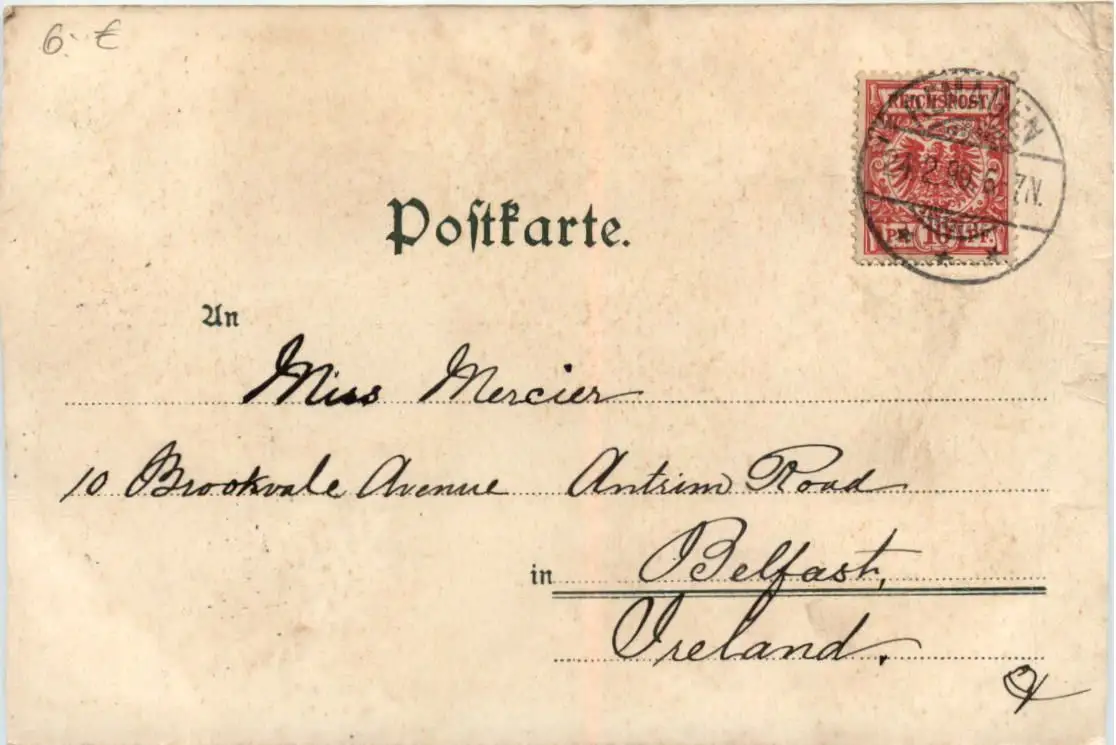 6.- €
REICHSPOST
REMAGEN
2.99. 6-7N.
PF. 10 PF.
Postkarte.
An
Miss Mercier
10 Brookvale Avenue Antrim Road
in Belfast,
Ireland.